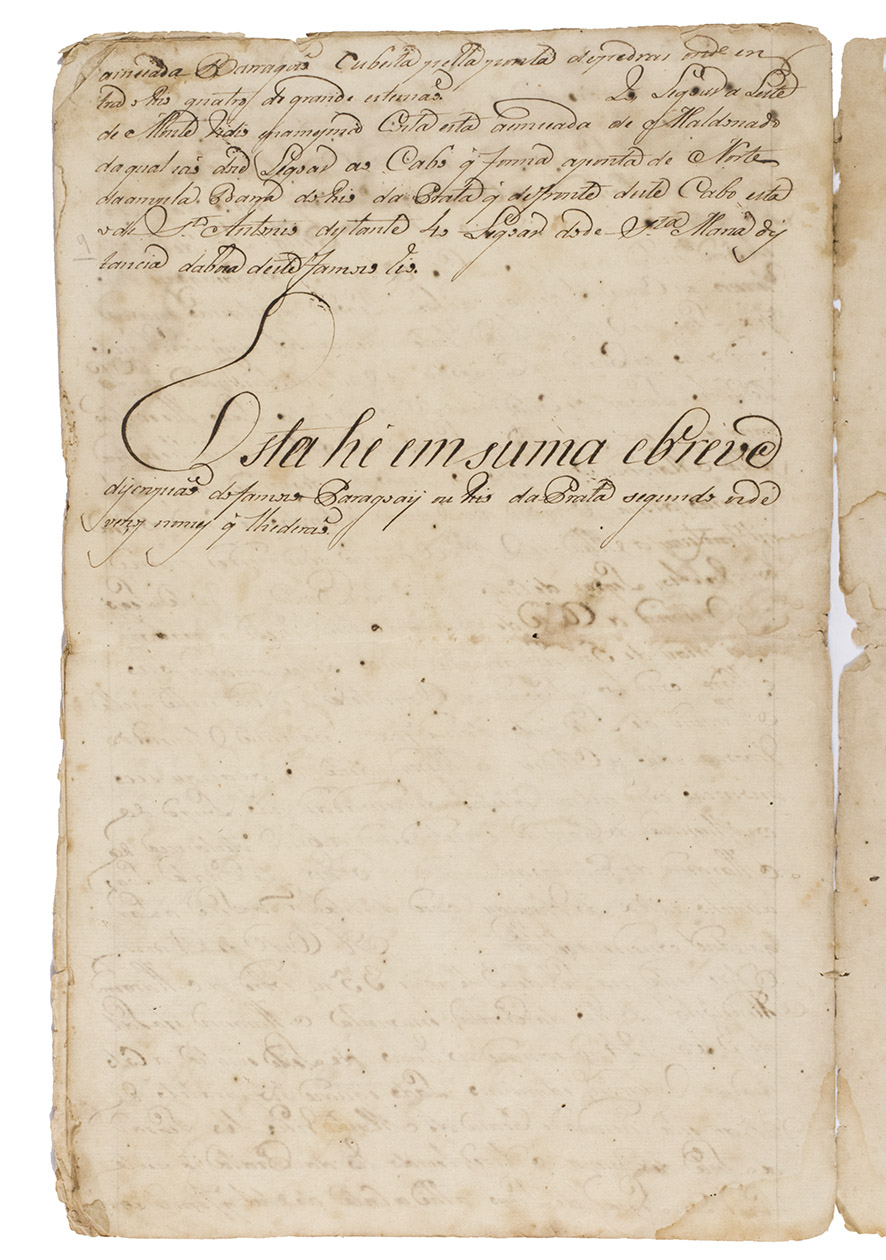 a emseada Barragãs Cuberta pella ponta depedras onde en
trad° rios quatro de grande estensaõ. Legoas a Leste
de Monte Vidio está a emseada de Maldonado
daqual saõ Legoas ao Cabo q̃ forma aponta de Norte
daampla Barra do Rio da Prata q̃ defronte deste Cabo esta
o de S.to Antonio dystante 40 Legoas desde S.ta Maria dis
tancia daboca deste famozo Rio.
9
Esta hé em suma ebreve
discripçaõ do famozo Paraguay ou Rio da Prata segundo
nomes q̃ lhederaõ.